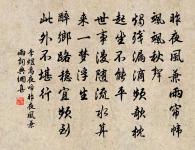 昨夜風兼雨簾幃
颯颯秋聲
燭殘漏滴頻欹枕
起坐不能平
世事漫隨流水算
來一夢浮生
醉鄉路穩宜頻到
此外不堪行
李煜烏夜啼昨夜風兼
雨詞